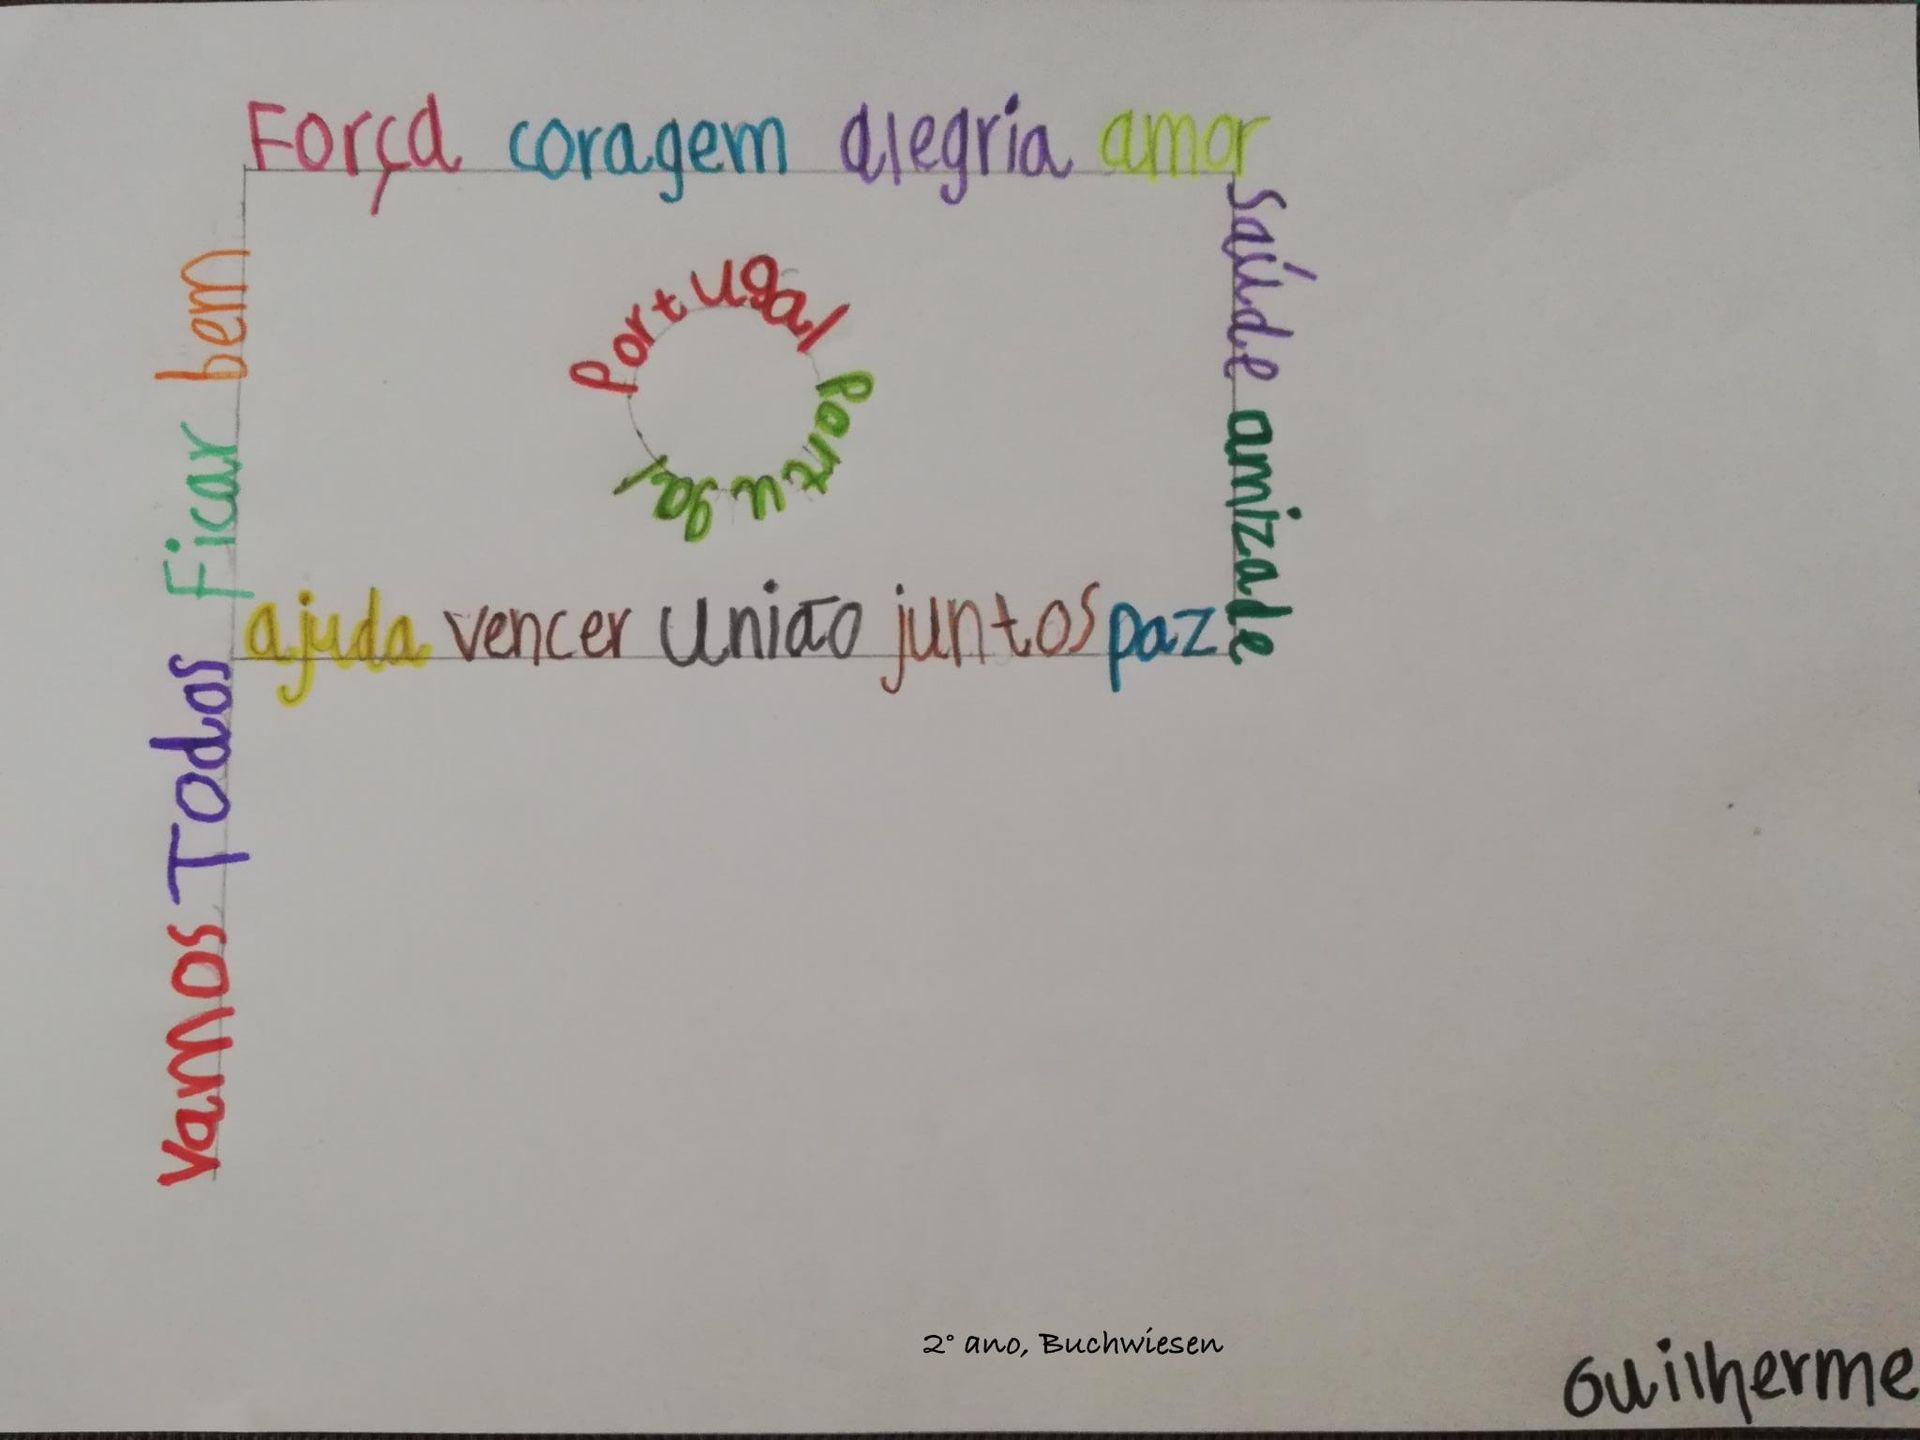 Vamos Todos Ficar bem
Força coragem alegria amor
Saúde amizade
ajuda vencer União juntos paz
Portugal Portugal
2° ano, Buchwiesen
Guilherme